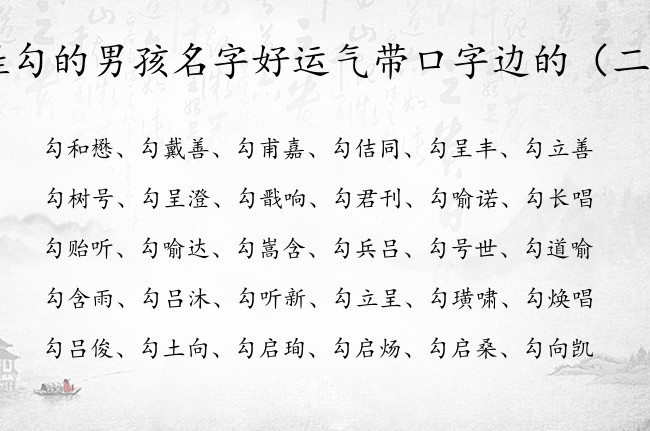 勾的男孩名字好运气带口字边的（二
勾和懋、勾戴善、勾甫嘉、勾佶同、勾呈丰、勾立善
勾树号、勾呈澄、勾戬响、勾君刊、勾喻诺、勾长唱
勾贻听、勾喻达、勾嵩含、勾兵吕、勾号世、勾道喻
勾含雨、勾吕沐、勾听新、勾立呈、勾璜啸、勾焕唱
勾吕俊、勾土向、勾启珣、勾启炀、勾启桑、勾向凯